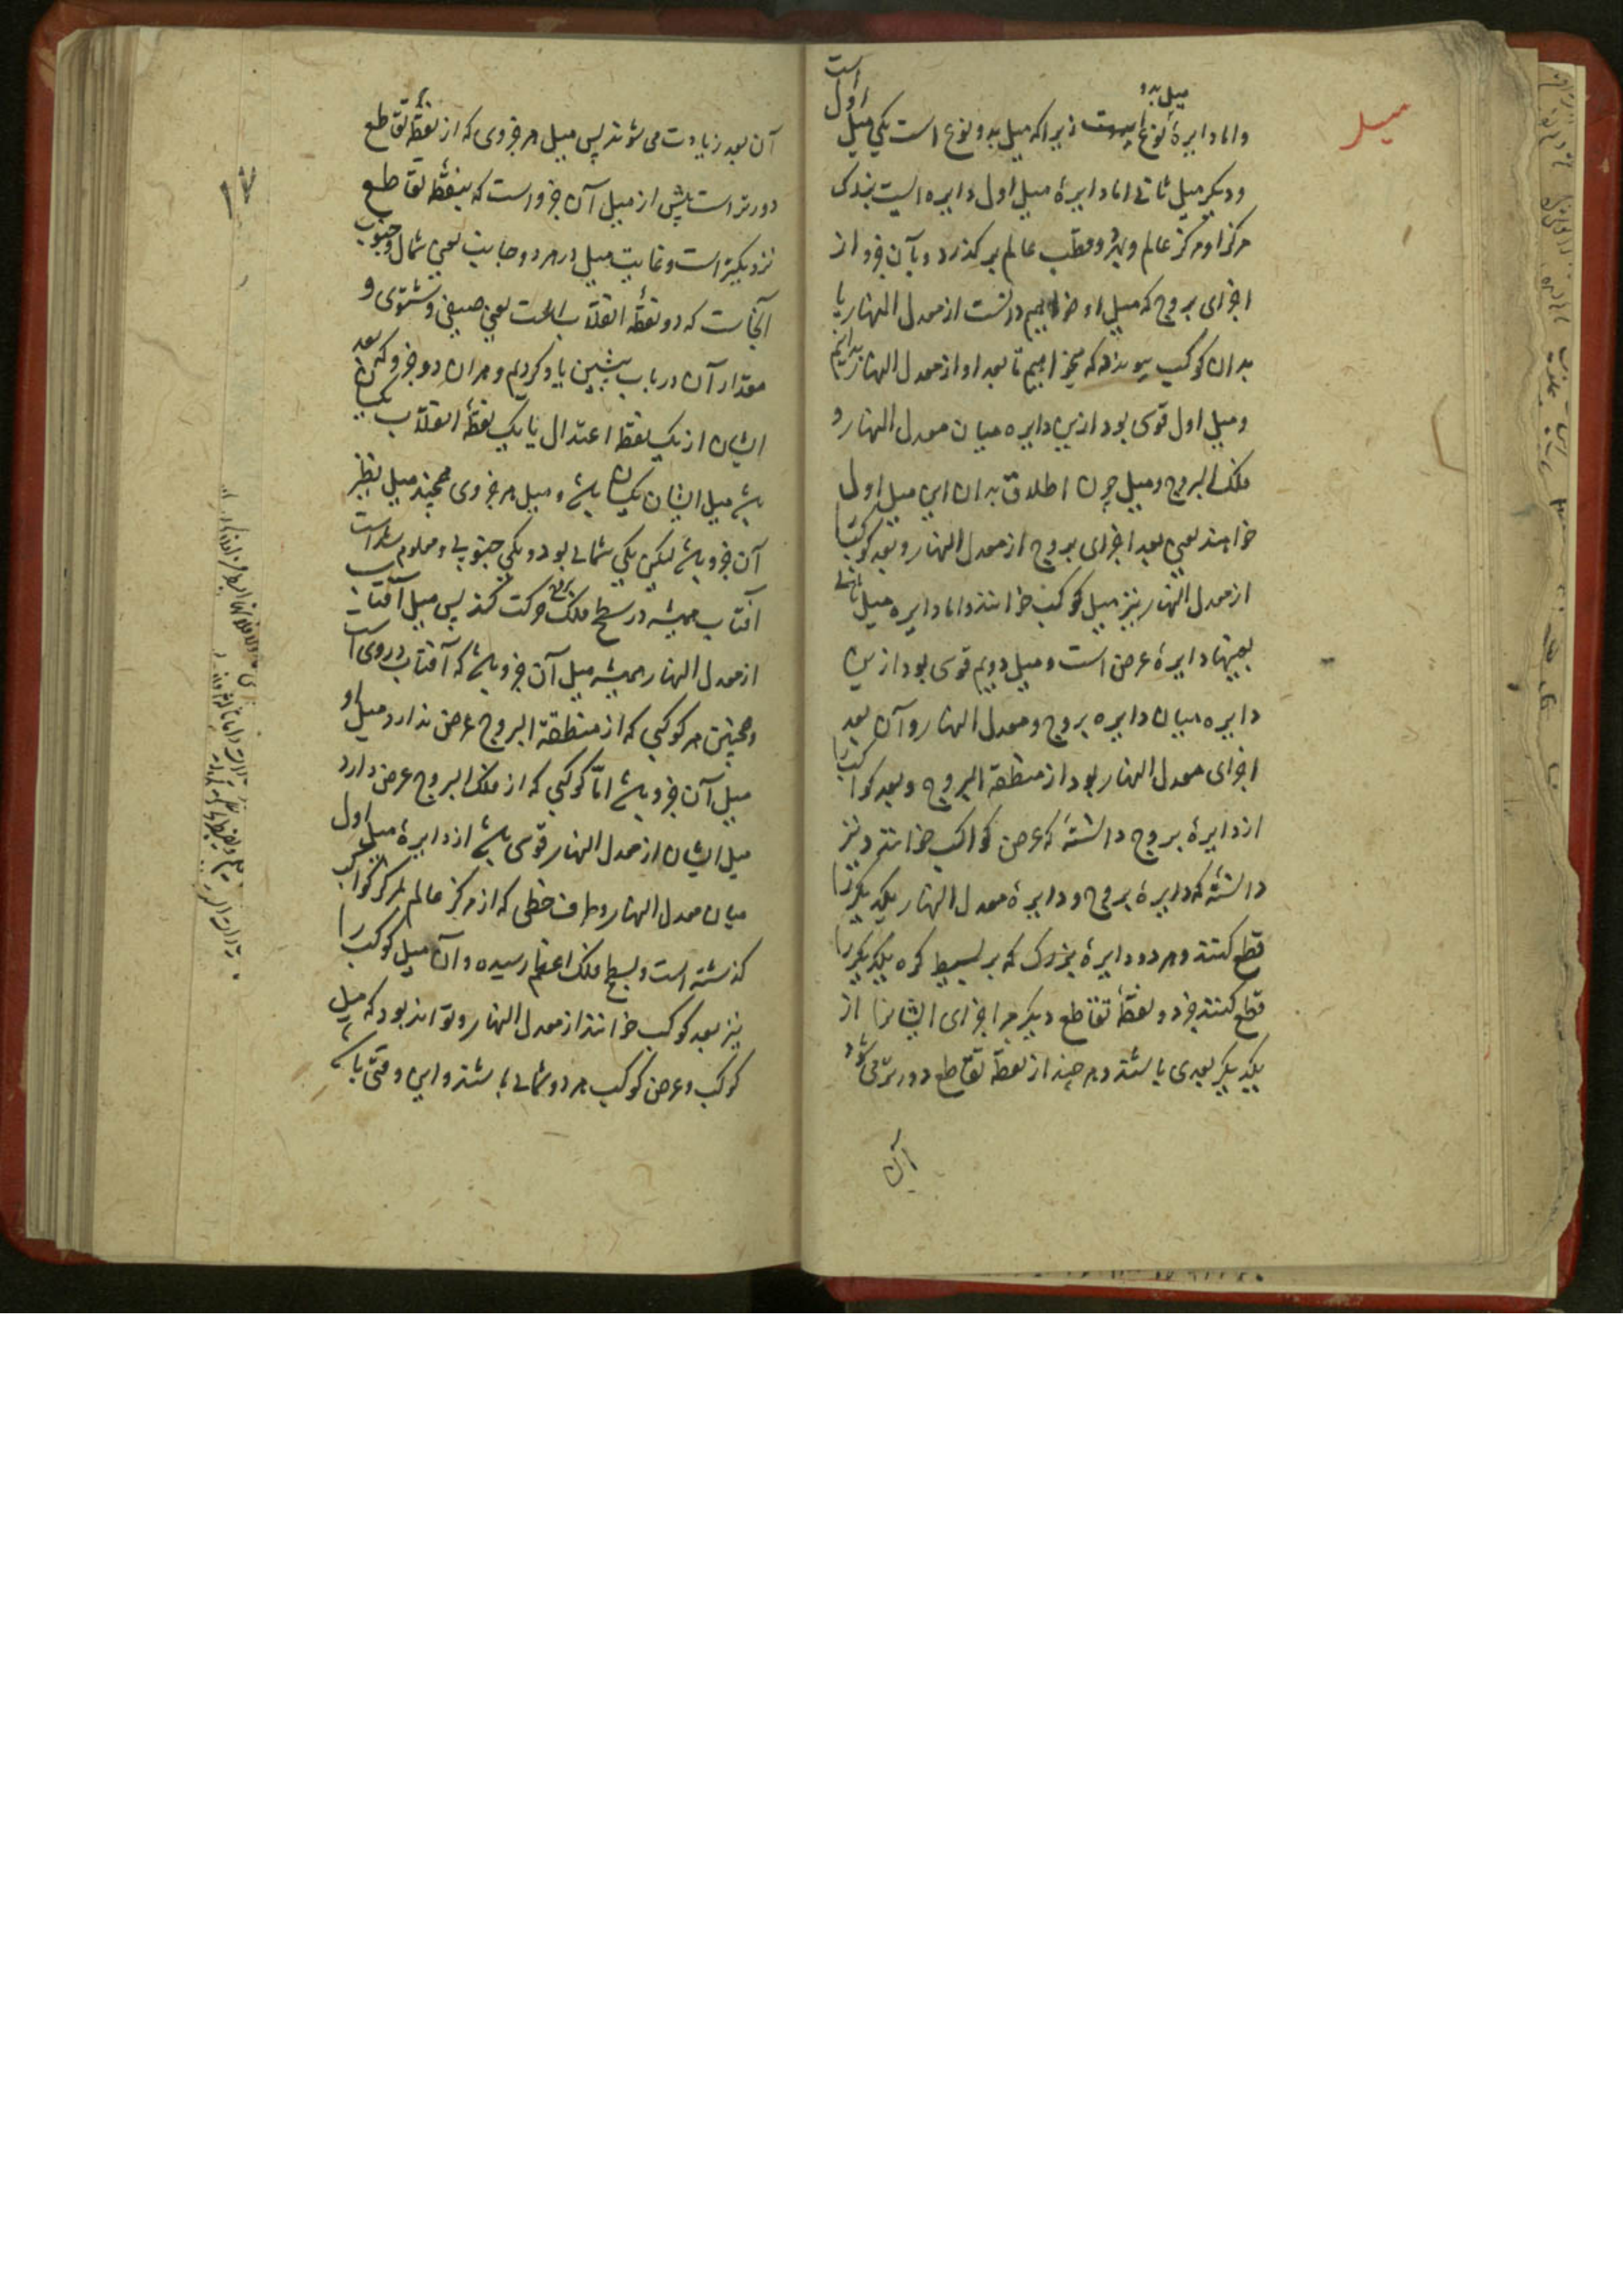 میل
واما دایرهٔ نوع میل بدو است زیرا که میل بدو نوع است یکی میل اول است
ودیکر میل ثانی اما دایرهٔ میل اول دایره ایست بزرک
مرکز او مرکز عالم وبهر دو قطب عالم بر کذرد وبآن جزو از
اجزای بروج که میل او خواهیم دانست از معدل النهار یا
بدان کوکب که میخواهیم تا بعد او از معدل النهار بدانیم
ومیل اول قوسی بود ازین دایره میان معدل النهار و
فلک البروج ومیل چون اطلاق بدان این میل اول
خواهند یعنی بعد اجزای بروج از معدل النهار وبعد کوکب
از معدل النهار نیز میل کوکب خوانند واما دایره میل ثانی
بعینها دایرهٔ عرض است ومیل دویم قوسی بود ازین
دایره میان دایره بروج ومعدل النهار وآن بعد
اجزای معدل النهار بود از منطقة البروج وبعد کواکب را
از دایرهٔ بروج دانسته که عرض کواکب خوانند ونیز
دانسته که دایرهٔ بروج ودایرهٔ معدل النهار یکدیکر را
قطع کنند وهر دو دایرهٔ بزرک که بر بسیط کره یکدیکر را
قطع کنند جز دو نقطهٔ تقاطع دیکر هر اجزای ایشانرا از
یکدیکر بعدی باشد وهر چند از نقطهٔ تقاطع دورتر می شود
آن
۱۷
آن بعد زیادت می شوند پس میل هر جزوی که از نقطهٔ تقاطع
دورتر است بیش از میل آن جزو است که بنقطهٔ تقاطع
نزدیکتر است وغایت میل در هر دو جانب یعنی شمال وجنوب
آنجاست که دو نقطهٔ انقلاب است یعنی صیفی وشتوی و
مقدار آن در باب پیشین یاد کردیم وهر ان دو جزو که بعد
ایشان از یک نقطه اعتدال یا یک نقطهٔ انقلاب یکسان
باشد میل ایشان یکسان باشد ومیل هر جزوی همچند میل نظیر
آن جزو باشد لیکن یکی شمالی بود ویکی جنوبی ومعلوم شده است
آفتاب همیشه در سطح فلک بروج حرکت کند پس میل آفتاب
از معدل النهار همیشه میل آن جزو باشد که آفتاب در وی است
وهمچنین هر کوکبی که از منطقة البروج عرض ندارد میل او
میل آن جزو باشد امّا کوکبی که از فلک البروج عرض دارد
میل ایشان از معدل النهار قوسی باشد از دایرهٔ میل اول
میان معدل النهار وطرف خطی که از مرکز عالم بمرکز کواکب
کذشته است وبسطح فلک اعظم رسیده وآن میل کوکب را
نیز بعد کوکب خوانند از معدل النهار وتواند بود که میل
کوکب وعرض کوکب هر دو شمالی باشند واین وقتی باشد